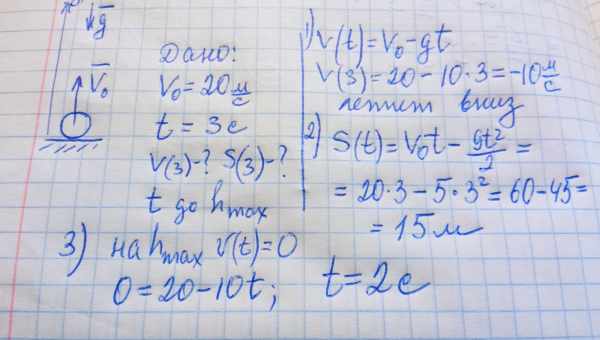 g
V₀
Дано:
V₀=20 м/с
t = 3 с
V(3)-? S(3)-?
t до hmax
1) V(t)=V₀-gt
V(3)=20-10·3=-10 м/с
летит вниз
2) S(t)=V₀t-gt²/2=
=20·3-5·3²=60-45=
=15м
3) на hmax V(t)=0
0=20-10t; t=2с